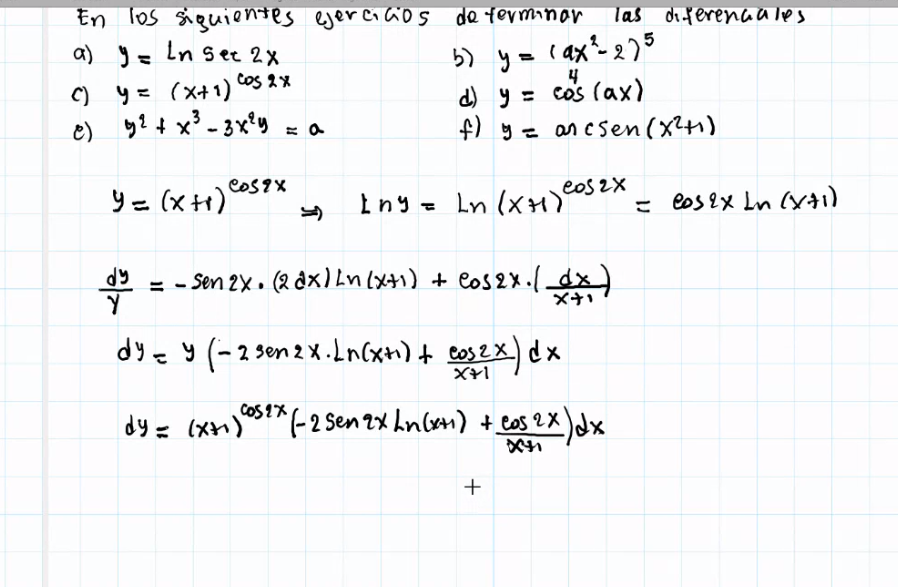 En los siguientes ejercicios determinar las diferenciales
a) y = Ln sec 2x b) y = (ax² - 2)⁵
c) y = (x+1)^cos 2x d) y = cos⁴(ax)
e) y² + x³ - 3x²y = a f) y = arcsen(x²+1)
y = (x+1)^cos2x ⇒ Lny = Ln(x+1)^cos2x = cos2x Ln(x+1)
dy/y = -Sen2x·(2dx)Ln(x+1) + Cos2x·(dx/x+1)
dy = y(-2sen2x·Ln(x+1) + cos2x/x+1)dx
dy = (x+1)^cos2x(-2Sen2xLn(x+1) + cos2x/x+1)dx